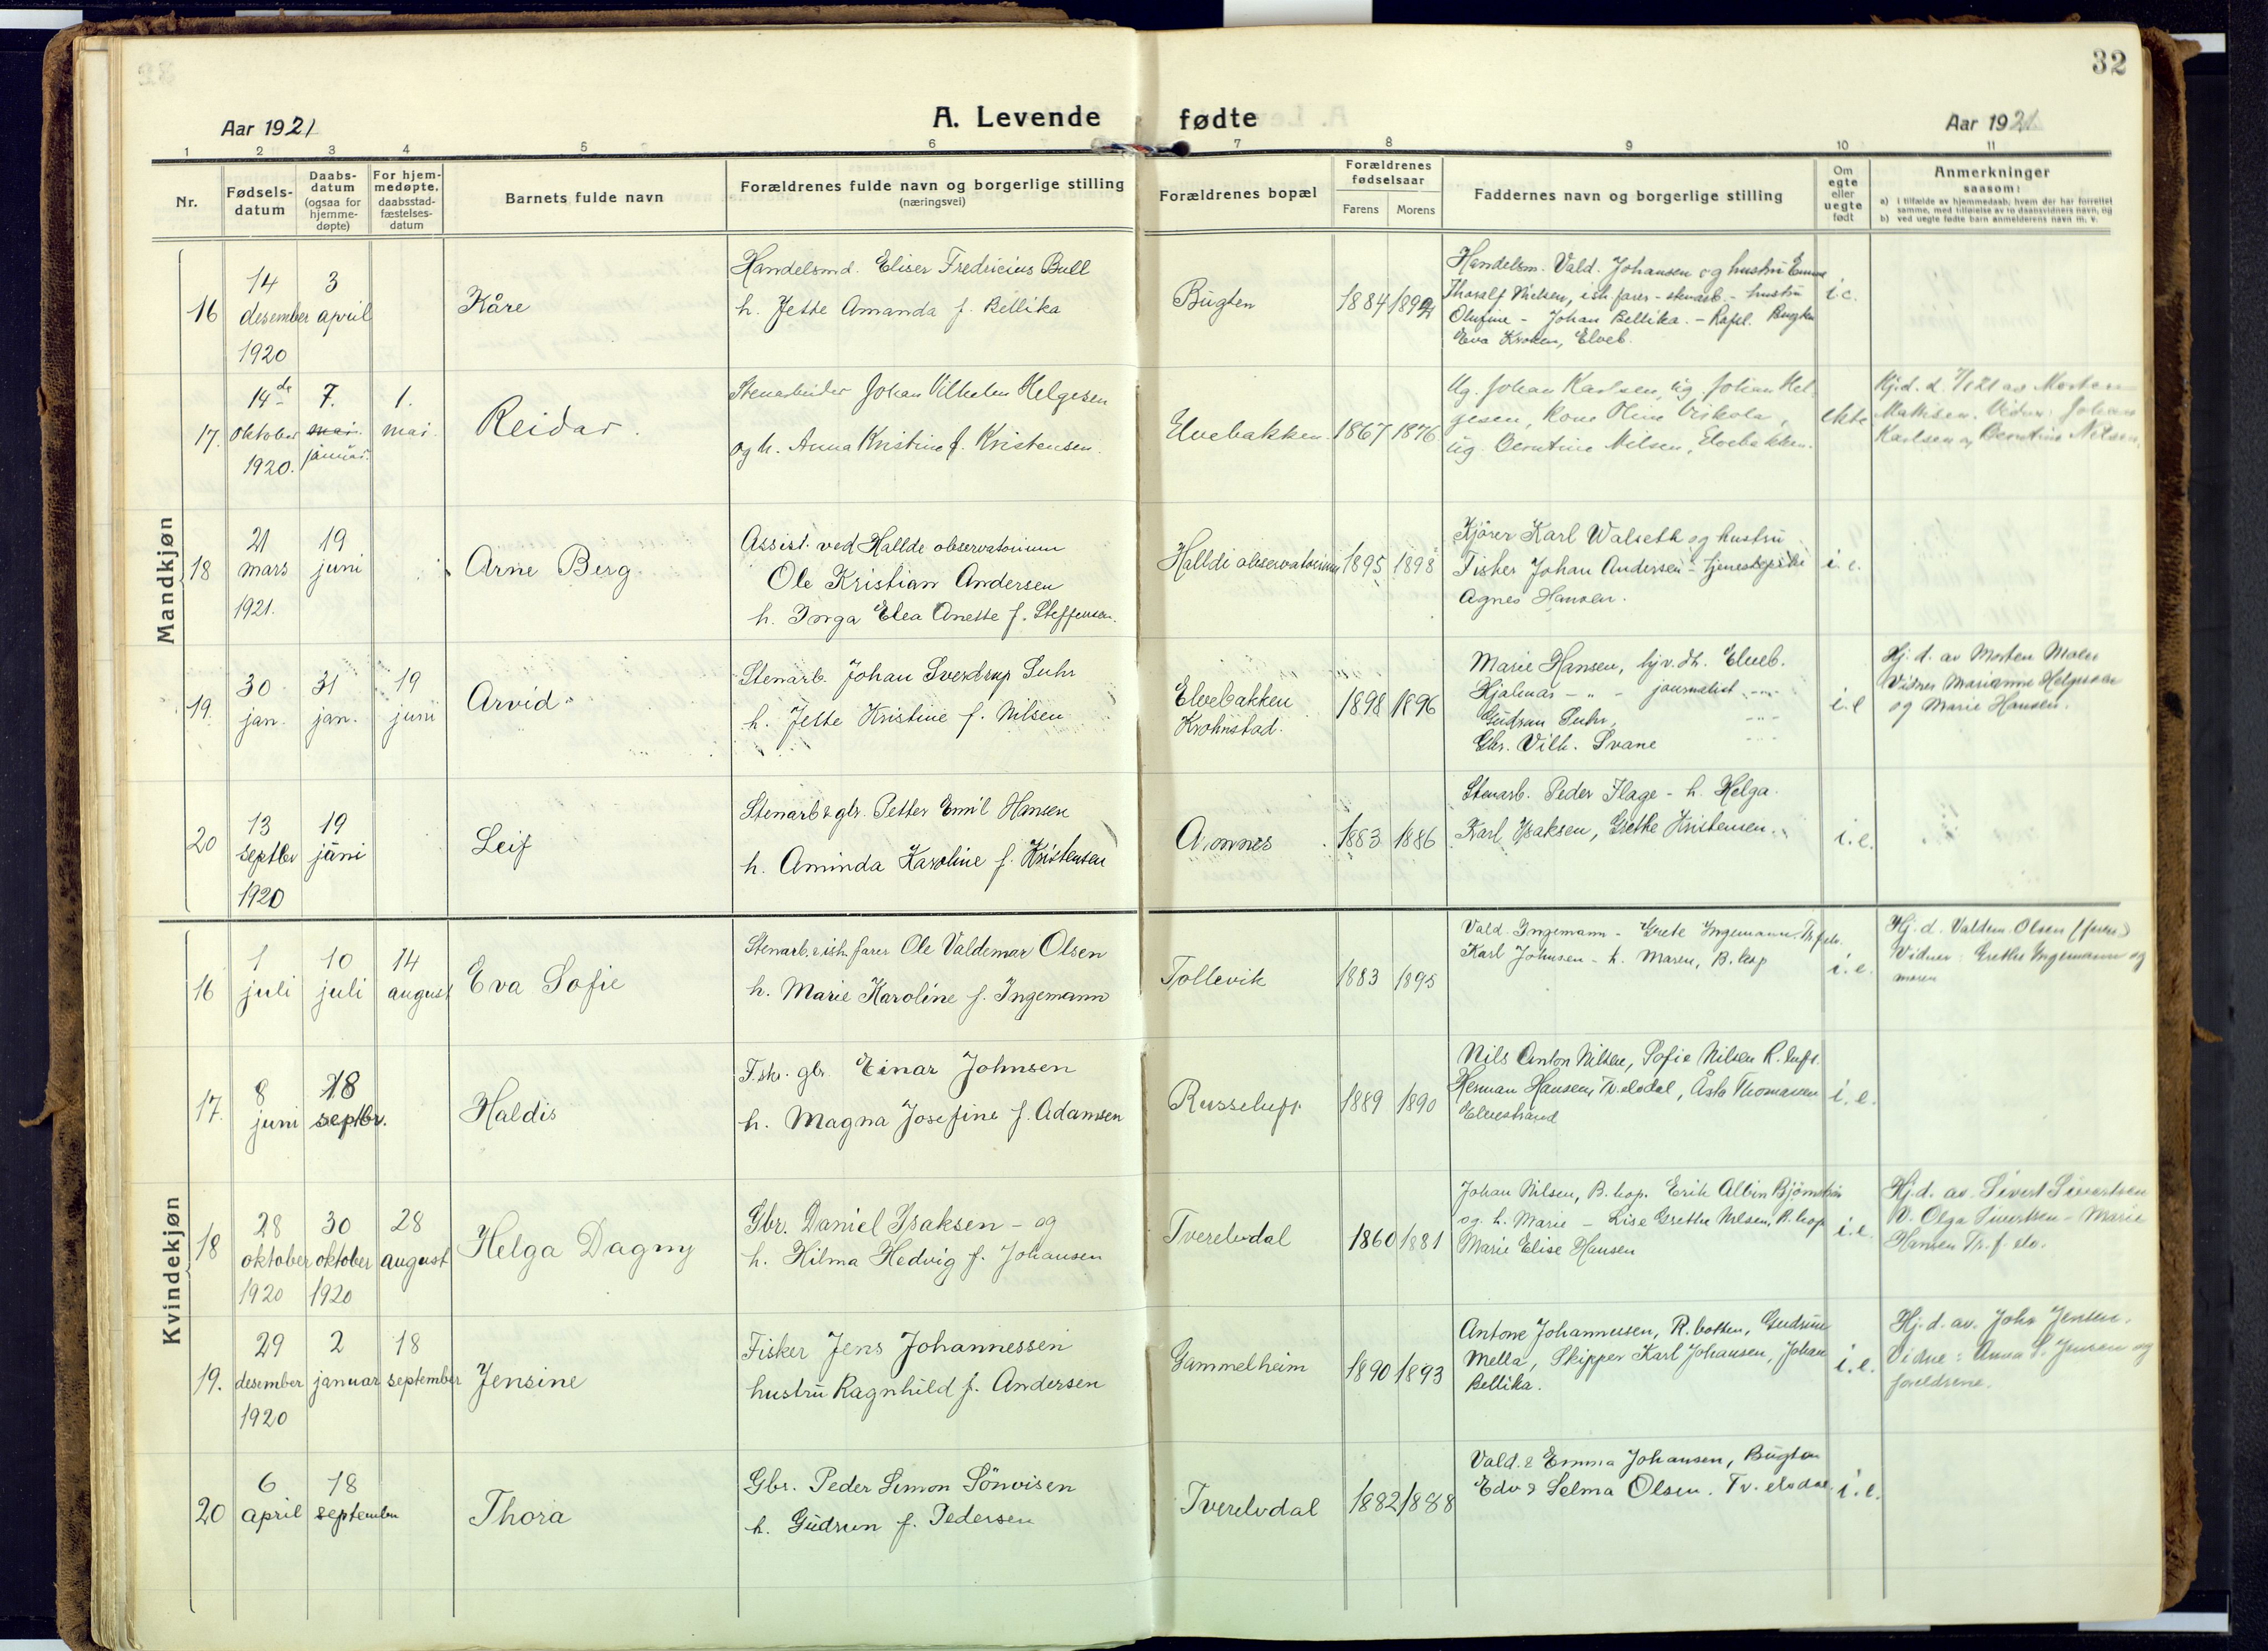 32
Aar 1921
A. Levende fødte
Aar 1921
1 2 3 4 5 6 7 8 9 10 11
Nr.
Fødsels-
datum
Daabs-
datum
(ogsaa for
hjemme-
døpte)
For hjem-
medøpte,
daabsstad-
fæstelses-
datum
Barnets fulde navn
Forældrenes fulde navn og borgerlige stilling
(næringsvei)
Forældrenes bopæl
Forældrenes
fødselsaar
Farens Morens
Faddernes navn og borgerlige stilling
Om
egte
eller
uegte
født
Anmerkninger
saasom:
a) i tilfælde av hjemmedaab, hvem der har forrettet
samme, med tilføielse av to daabsvidners navn, og
b) ved uegte fødte barn anmelderens navn m. v.
Mandkjøn
16
14
desember
1920
3
april
Kåre
Handelsmd. Eliser Fredricius Bull
h. Jette Amanda f. Bellika
Bugten
1884 1892
Handelsm. Vald. Johansen og hustru Emma
Thoralf Nielsen, ish.farer - stenarb. - hustru
Olufine - Johan Bellika. - Rafsb. Bugten
Eva Kroken, Elveb.
i.e.
17.
14de
oktober
1920.
7.
mai.
januar.
1.
mai.
Reidar.
Stenarbeider Johan Vilhelm Helgesen
og h. Anna Kristine f. Kristensen.
Elvebakken.
1867 1876
Ug. Johan Karlsen, ug. Johan Hel-
gesen, Kone Oline
ug. Berntine Nilsen, Elvebakken.
ekte
Hj.d. d. 7/1 21 av Morten
Mathisen. Vidner: Johan
Karlsen og Berntine Nilsen
18
21
mars
1921.
19
juni
Arne Berg.
Assist. ved Hallde observatorium
Ole Kristian Andersen
h. Inga Elea Anette f. Steffensen.
Halldi observatorium
1895 1898
Kjörer Karl Walseth og hustru
Fisker Johan Andersen - tjenestepike
Agnes Hansen.
i.e.
19.
30
jan.
31
jan.
19
juni
Arvid.
Stenarb. Johan Sverdrup Suhr
h. Jette Kristine f. Nilsen
Elvebakken
Krohnstad.
1898 1896
Marie Hansen, Elveb.
Hjalmar - " - journalist
Gudrun Suhr,
Chr. Vilh. Svane
i.e
Hj. d. av Morten Moen
Vidner Marianne Helgesen
og Marie Hansen.
20
13
septbr
1920
19
juni
Leif
Stenarb & gbr. Petter Emil Hansen
h. Aminda Karoline f. Kristensen
Amnes
1883 1886
Stenarb. Peder Flage - h. Helga.
Karl Isaksen, Grethe Kristensen.
i.e.
Kvindekjøn
16
1
juli
10
juli
14
august
Eva Sofie
Stenarb. & ish.farer Ole Valdemar Olsen
h. Marie Karoline f. Ingemann
Tollevik
1883 1895
Vald. Ingemann - Grete Ingemann. Tr.f.elv.
Karl Johnsen - h. Maren, B.hop
i.e.
Hj. d. Valdem. Olsen (faren)
Vidner: Grethe Ingemann og
moren
17.
8
juni
18
septbr.
Haldis
Fisk. gbr. Einar Johnsen
h. Magna Josefine f. Adamsen
Russeluft
1889 1890
Nils Anton Nilsen, Sofie Nilsen R.luft.
Herman Hansen, Tv.elvdal, Åsta Thomassen
Elvestrand
i.e.
18
28
oktober
1920
30
oktober
1920
28
august
Helga Dagny
Gbr. Daniel Isaksen - og
h. Hilma Hedvig f. Johansen
Tverelvdal
1860 1881
Johan Nilsen, B.hop. Erik Albin
og h. Marie - Lise Grethe Nilsen, B.hop
Marie Elise Hansen
i.e.
Hj.d. av Sivert Sivertsen
V. Olga Sivertsen - Marie
Hansen Tr.f.elv.
19.
29
desember
1920
2
januar
18
september
Jensine
Fisker Jens Johannessen
hustru Ragnhild f. Andersen
Gammelheim
1890 1893
Antone Johannessen, R.botten, Gudrun
Mella, Skipper Karl Johansen, Johan
Bellika.
i.e.
Hj.d. av. John Jensen.
Vidne: Anna S. Jensen og
foreldrene.
20
6
april
18
september
Thora
Gbr. Peder Simon Sönvisen
h. Gudrun f. Pedersen
Tverelvdal
1882 1888
Vald. & Emma Johansen, Bugten
Edv & Selma Olsen. Tv.elvdal.
i.e.